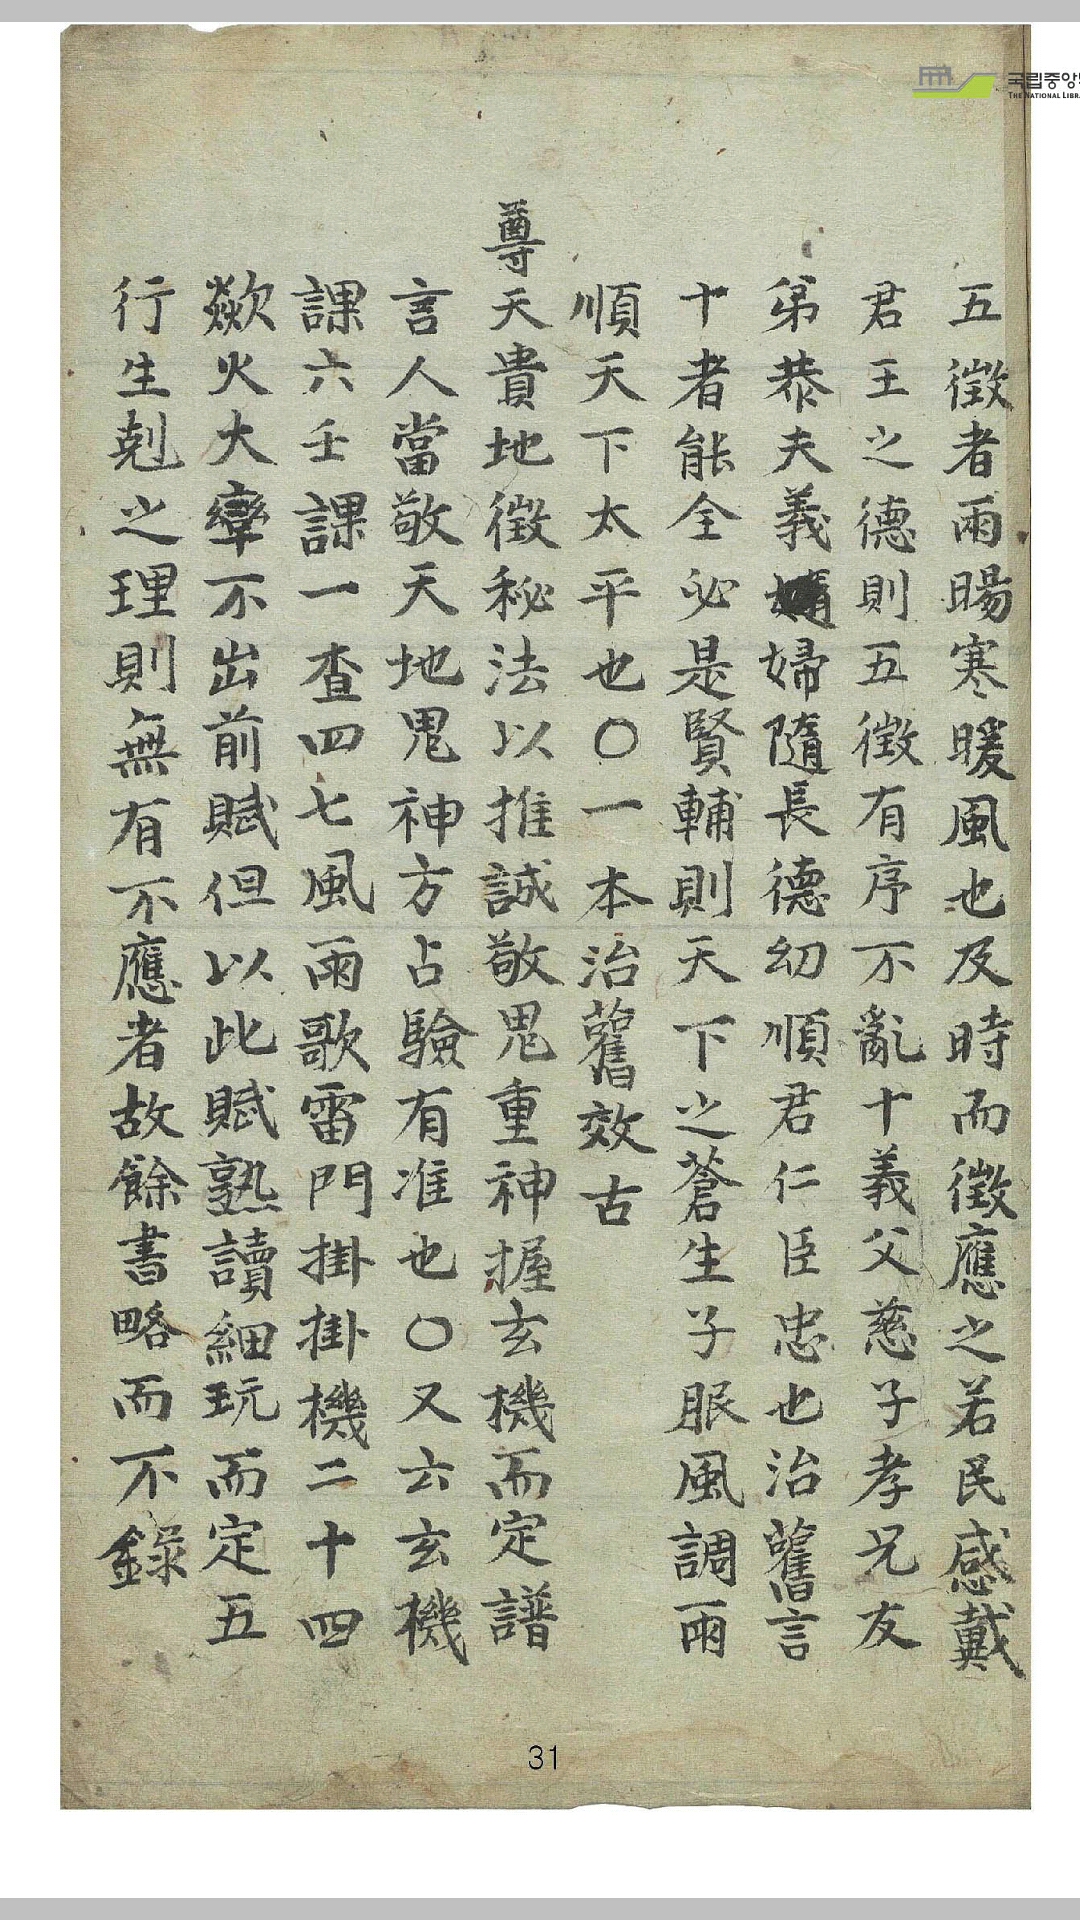 五徵者雨暘寒暖風也及時而徵應之若民感戴
君王之德則五徵有序不亂十義父慈子孝兄友
弟恭夫義婦隨長德幼順君仁臣忠也治舊言
十者能全必是賢輔則天下之蒼生子眠風調雨
順天下太平也〇一本治舊效古
尊天貴地徵秘法以推誠敬鬼重神握玄機而定譜
言人當敬天地鬼神方占驗有准也〇又六玄機
課六壬課一查四七風雨歌雷門掛掛機二十四
歘火大犖不出前賦但以此賦熟讀細玩而定五
行生剋之理則無有不應者故餘書略而不錄
국립중앙
THE NATIONAL LIBRA
31